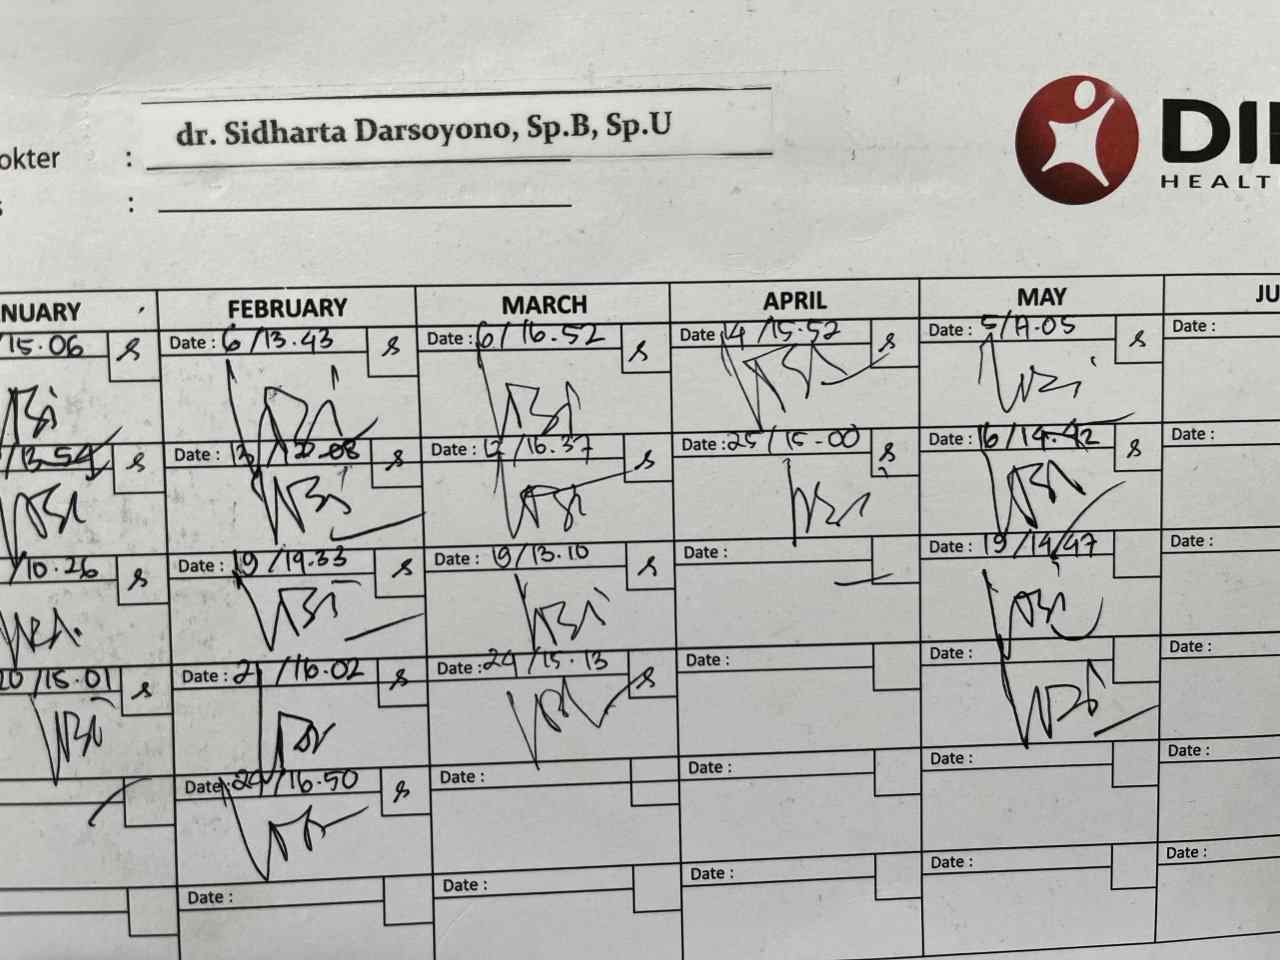 dr. Sidharta Darsoyono, Sp.B, Sp.U
okter :
s :
DI
HEALT
NUARY FEBRUARY MARCH APRIL MAY JU
/15.06 Date : 6/13.43 Date : 6/16.52 Date 14/15.52 Date : 5/ Date :
/13.54 Date : Date : /16.37 Date : 25/15-00 Date : 16/14.42 Date :
/10.26 Date : 19/19.33 Date : 19/13.10 Date : Date : 19/14/47 Date :
20/15.01 Date : 21/16.02 Date : 24/15.13 Date : Date : Date :
Date : 24/16.50 Date : Date : Date : Date :
Date : Date : Date : Date : Date :